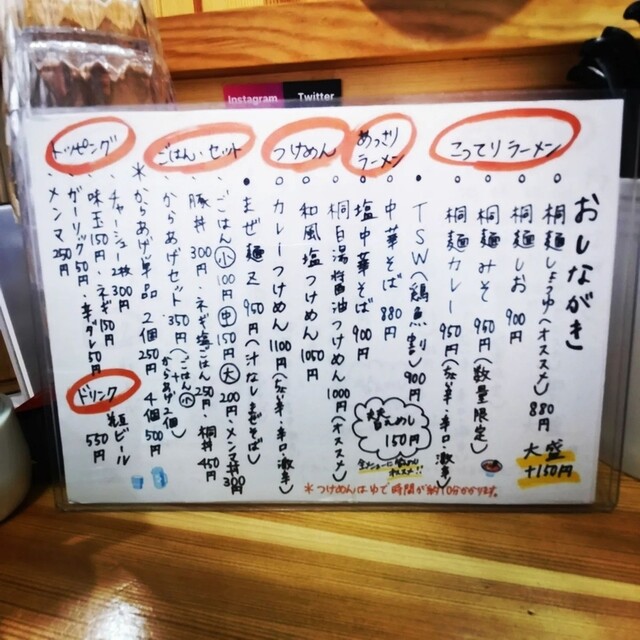 Instagram
Twitter
おしながき
こってりラーメン
桐麺しょうゆ(オススメ) 880円
大盛+150円
桐麺しお 900円
桐麺みそ 950円(数量限定)
桐麺カレー 950円(ちょい辛・辛口・激辛)
TSW(鶏魚割) 900円
あっさりラーメン
中華そば 880円
塩中華そば 900円
替えめし 150円
つけめん
桐白湯醤油つけめん 1000円(オススメ)
和風塩つけめん 1050円
カレーつけめん 1100円(ちょい辛・辛口・激辛)
まぜ麺Z 950円(汁なしまぜそば)
*つけめんはゆで時間が約10分かかります。
ごはん・セット
ごはん小100円中150円大200円・メンマ丼300
豚丼300円・ネギ塩ごはん250・桐丼450
からあげセット・350円(ごはん小+からあげ2個)
*からあげ単品 2個250円 4個500円
トッピング
・チャーシュー2枚300円
・味玉150円・ネギ150円
・ガーリック50円・辛ダレ50円
・メンマ250円
ドリンク
瓶ビール550円